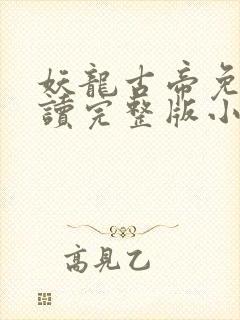 妖龍古帝免
讀完整版小
高見乙